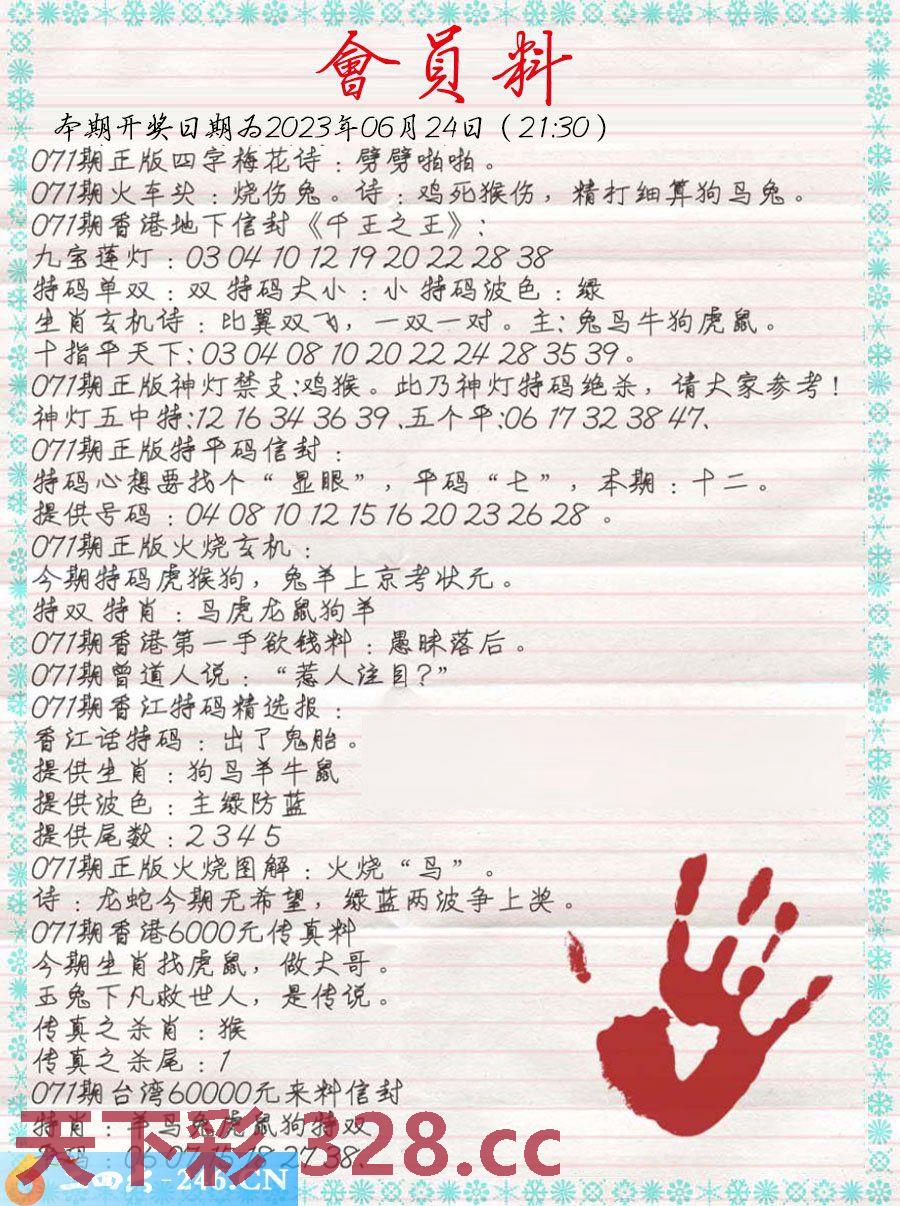 會員料
本期开奖日期为2023年06月24日（21:30）
071期正版四字梅花诗：劈劈啪啪。
071期火车头：烧伤兔。诗：鸡死猴伤，精打细算狗马兔。
071期香港地下信封《千王之王》：
九宝莲灯：03 04 10 12 19 20 22 28 38
特码单双：双 特码大小：小 特码波色：绿
生肖玄机诗：比翼双飞，一双一对。主：兔马牛狗虎鼠。
十指平天下：03 04 08 10 20 22 24 28 35 39。
071期正版神灯禁支：鸡猴。此乃神灯特码绝杀，请大家参考！
神灯五中特：12 16 34 36 39、五个平：06 17 32 38 47、
071期正版特平码信封：
特码心想要找个“显眼”，平码“七”，本期：十二。
提供号码：04 08 10 12 15 16 20 23 26 28 。
071期正版火烧玄机：
今期特码虎猴狗，兔羊上京考状元。
特双 特肖：马虎龙鼠狗羊
071期香港第一手欲钱料：愚昧落后。
071期曾道人说：“惹人注目？”
071期香江特码精选报：
香江话特码：出了鬼胎。
提供生肖：狗马羊牛鼠
提供波色：主绿防蓝
提供尾数：2 3 4 5
071期正版火烧图解：火烧“马”。
诗：龙蛇今期无希望，绿蓝两波争上奖。
071期香港6000元传真料
今期生肖找虎鼠，做大哥。
玉兔下凡救世人，是传说。
传真之杀肖：猴
传真之杀尾：1
071期台湾60000元来料信封
特肖：羊马兔虎鼠狗特双
码：06 07 15 18 27 38、
天下彩 328.cc
二四六-246.CN